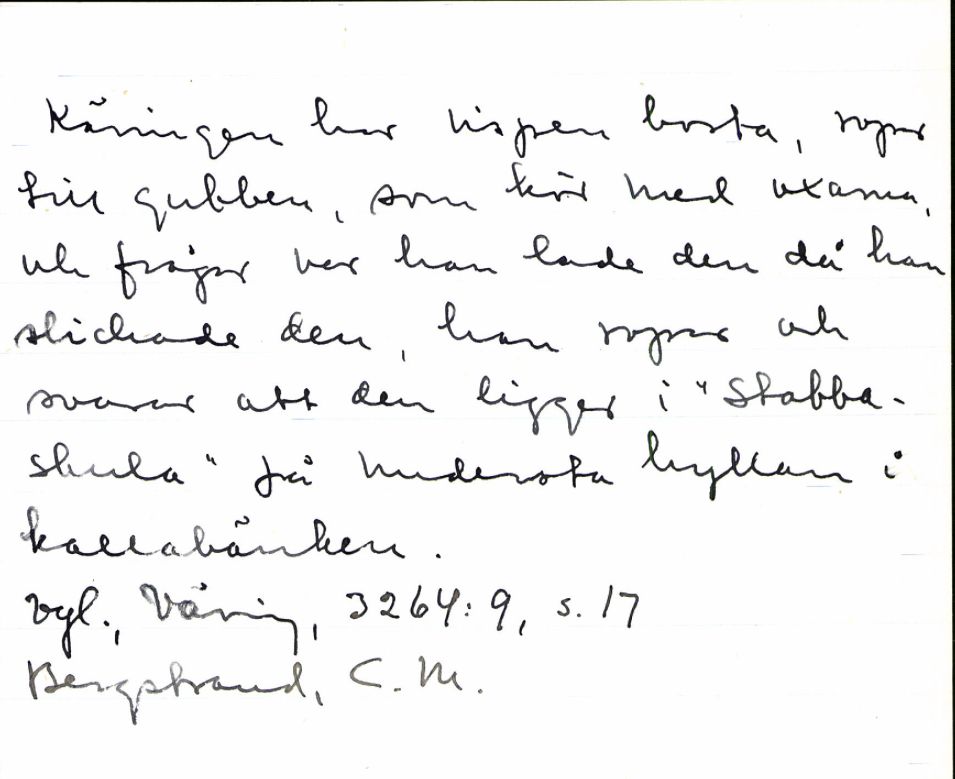 Käringen har vispen borta, ropar
till gubben, som kör med oxarna,
och frågar var han lade den då han
slickade den, han ropar och
svarar att den ligger i "Stabba-
skula" på nedersta hyllan i
kallabänken.
Vgl., Väring, 3264:9, s. 17
Bergstrand, C. M.